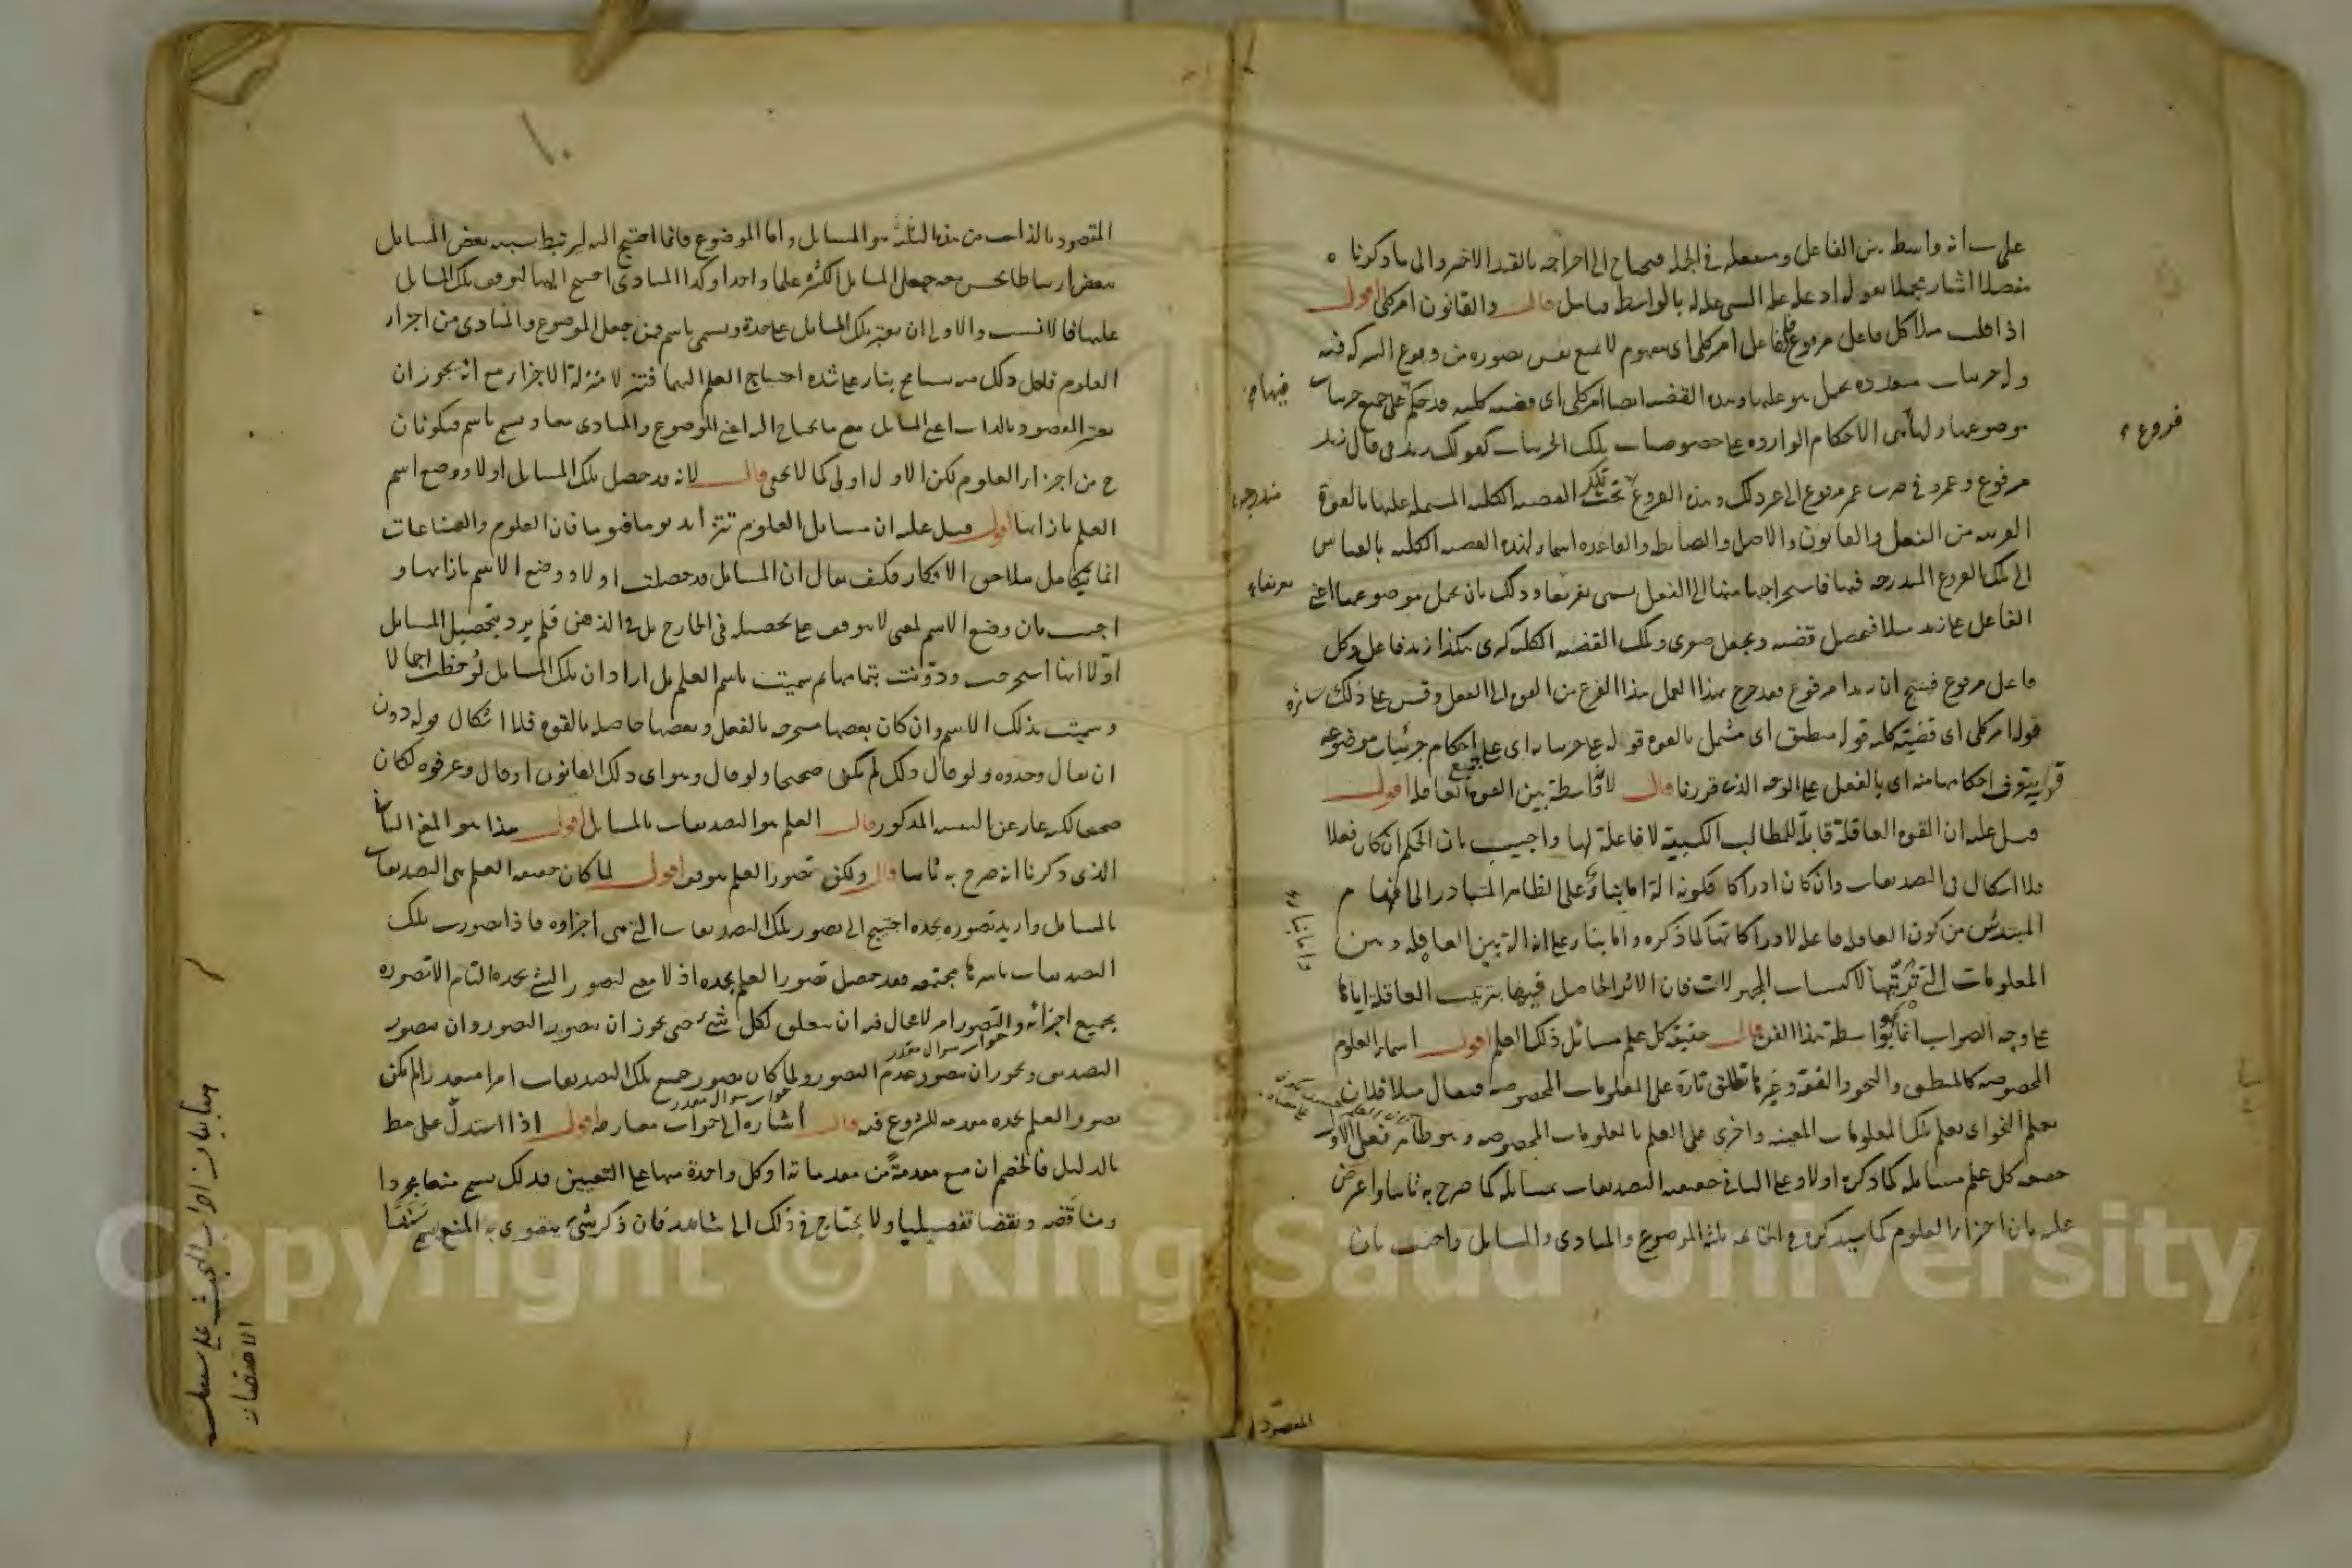 على انه واسطة بين الفاعل ومنفعله في الجملة فيحتاج الى اخراجه بالقيد الاخير والى ما ذكرنا ه
مفصلا اشار مجملا بقوله اذ علة علة الشيء علة له بالواسطة فتأمل قال والقانون امر كلي اقول
اذا قلت مثلا كل فاعل مرفوع فالفاعل امر كلي اى مفهوم لا يمنع نفس تصوره من وقوع الشركة فيه
وله جزئيات متعددة يحمل هو عليها وهذه القضية ايضا امر كلي اى قضية كلية قد حكم على جميع جزئيات
موضوعها ولها الاحكام الواردة على خصوصيات تلك الجزئيات كقولك زيد في قال زيد
مرفوع وعمرو في ضرب عمرو مرفوع الى غير ذلك وهذه الفروع تحت تلك القضية الكلية المشتملة عليها بالقوة
القريبة من الفعل والقانون والاصل والضابطة والقاعدة اسماء لهذه القضية الكلية بالقياس
الى تلك الفروع المندرجة فيها فاستخراجها منها الى الفعل يسمى تفريعا وذلك بان يحمل موضوعها اعني
الفاعل على زيد مثلا فيحصل قضية ويجعل صغرى وتلك القضية الكلية كبرى هكذا زيد فاعل وكل
فاعل مرفوع فينتج ان زيدا مرفوع فقد خرج بهذا العمل هذا الفرع من القوة الى الفعل وقس على ذلك سائره
قوله امر كلي اى قضية كلية قوله منطبق اى مشتمل بالقوة قوله على جزئياته اى على جميع احكام جزئيات موضوعه
قوله يتعرف احكامها منه اى بالفعل على الوجه الذى قررنا قال لانه واسطة بين القوة العاقلة اقول
قيل عليه ان القوة العاقلة قابلة للمطالب الكسبية لا فاعلة لها واجيب بان الحكم ان كان فعلا
فلا اشكال في التصديقات وان كان ادراكا فكونه الة اما بناء على الظاهر المتبادر الى افهام
المبتدئين من كون العاقلة فاعلة لادراكاتها كما ذكره واما بناء على انه الة بين العاقلة وبين
المعلومات التي ترتبها لاكتساب المجهولات فان الاثر الحاصل فيها بترتيب العاقلة اياها
على وجه الصواب انما هو بواسطة هذا الفن قال حقيقة كل علم مسائل ذلك العلم اقول اسماء العلوم
المخصوصة كالمنطق والنحو والفقه وغيرها تطلق تارة على المعلومات المخصوصة فيقال مثلا فلان
يعلم النحو اى يعلم تلك المعلومات المعينة واخرى على العلم بالمعلومات المخصوصة وهو ظاهر فعلى الاول
حقيقة كل علم مسائله كما ذكره اولا وعلى الثاني حقيقته التصديقات بمسائله كما صرح به ثانيا واعترض
عليه بان اجزاء العلوم كما سيذكره في الخاتمة ثلثة الموضوع والمبادى والمسائل واجيب بان
المقصود
فروع
فيها
مندرجة
تفريعا
واما بناء
١٠
المقصود بالذات من هذه الثلثة هو المسائل واما الموضوع فانما احتيج اليه ليرتبط بسببه بعض المسائل
ببعض ارتباطا يحسن معه جعل المسائل الكثيرة علما واحدا وكذا المبادى احتيج اليها لتوقف تلك المسائل
عليها فالانسب والاولى ان يعتبر تلك المسائل على حدة ويسمى باسم فمن جعل الموضوع والمبادى من اجزاء
العلوم فلعل ذلك منه تسامح بناء على شدة احتياج العلم اليهما فنزلا منزلة الاجزاء مع انه يجوز ان
يعتبر المقصود بالذات اعني المسائل مع ما يحتاج اليه اعني الموضوع والمبادى معا ويسمى باسم فيكونان
ح من اجزاء العلوم لكن الاول اولى كما لا يخفى قال لانه قد حصل تلك المسائل اولا ووضع اسم
العلم بازائها اقول قيل عليه ان مسائل العلوم تتزايد يوما فيوما فان العلوم والصناعات
انما تتكامل بتلاحق الافكار فكيف يقال ان المسائل قد حصلت اولا ووضع الاسم بازائها و
اجيب بان وضع الاسم لمعنى لا يتوقف على تحصيله في الخارج بل في الذهن فلم يرد بتحصيل المسائل
اولا انها استخرجت ودونت بتمامها ثم سميت باسم العلم بل اراد ان تلك المسائل لوحظت اجمالا
وسميت بذلك الاسم وان كان بعضها مستخرجة بالفعل وبعضها حاصلة بالقوة فلا اشكال قوله دون
ان يقال وحدوه ولو قال ذلك لم يكن صحيحا ولو قال وهو اى ذلك القانون او قال وعرفوه لكان
صحيحا لكنه عار عن التنبيه المذكور قال العلم هو التصديقات بالمسائل اقول هذا هو المعنى الثاني
الذى ذكرنا انه صرح به ثانيا قال ولكن تصور العلم يتوقف اقول لما كان حقيقة العلم هى التصديقات
بالمسائل واريد تصوره بحده احتيج الى تصور تلك التصديقات التي هى اجزاؤه فاذا تصورت تلك
التصديقات باسرها مجتمعة فقد حصل تصور العلم بحده اذ لا معنى لتصور الشيء بحده التام الا تصوره
بجميع اجزائه والتصور امر لا مجال فيه ان يتعلق بكل شيء حتى يجوز ان يتصور التصور وان يتصور
التصديق ويجوز ان يتصور عدم التصور ولما كان تصور جميع تلك التصديقات امرا متعذرا لم يكن
تصور العلم بحده مقدمة للشروع فيه قال اشارة الى جواب معارضة اقول اذا استدل على مط
بالدليل فالخصم ان منع مقدمة من مقدماته او كل واحدة منها على التعيين فذلك يسمى منعا مجردا
ومناقضة ونقضا تفصيليا ولا يحتاج في ذلك الى شاهد فان ذكر شيء يتقوى به المنع يسمى سندا
جواب سوال مقدر
جواب سوال مقدر
الاعتقاد
Copyright © King Saud University